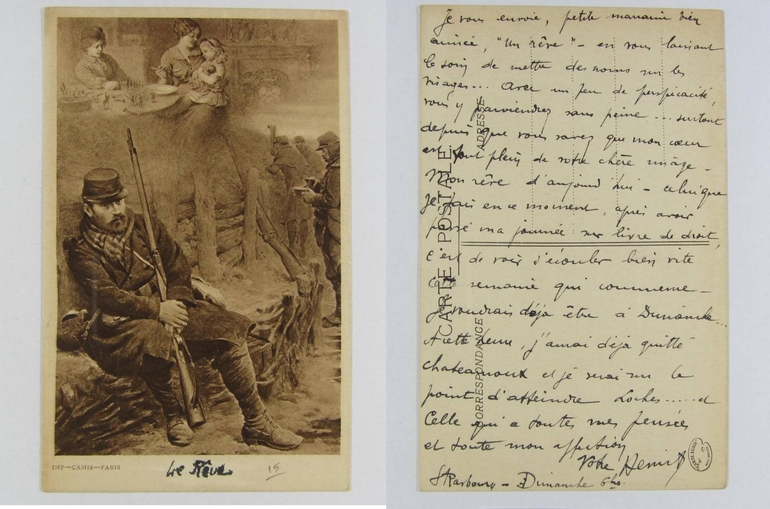 IMP—CAMIS—PARIS
Le Rêve
15
Je vous envoie, petite maman bien
aimée, "Un rêve" - en vous laissant
le soin de mettre des noms sur les
visages... Avec un peu de perspicacité,
vous y parviendrez sans peine... surtout
depuis que vous savez que mon cœur
est tout plein de votre chère image -
Mon rêve d'aujourd'hui - celui que
je fais en ce moment, après avoir
passé ma journée sur livre de droit,
c'est de voir s'écouler bien vite
cette semaine qui commence -
je voudrais déjà être à Dimanche...
A cette heure, j'aurai déjà quitté
Chateauroux et je serai sur le
point d'atteindre Loches..... et
Celle qui a toutes mes pensées
et toute mon affection
Votre
Strasbourg - Dimanche 6h
CARTE POSTALE
ADRESSE
CORRESPONDANCE